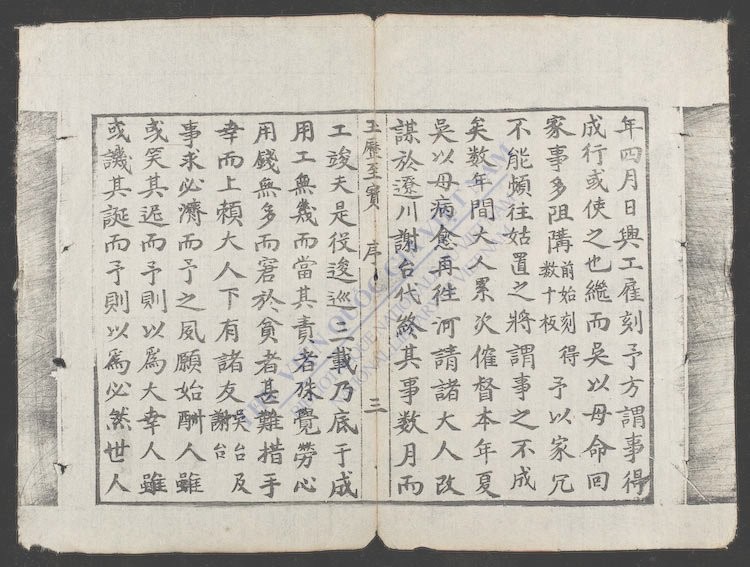 年四月日興工雇刻予方謂事得
成行或使之也繼而吳以母命回
家事多阻隔前始刻得數十板予以家冗
不能頻往姑置之將謂事之不成
矣數年間大人累次催督本年夏
吳以母病愈再徃河請諸大人改
謀於遼川謝台代終其事数月而
玉歷至寶 序 三
工竣夫是役逡巡三載乃底于成
用工無幾而當其責者殊覺勞心
用錢無多而窘於貧者甚難措手
幸而上賴大人下有諸友吳台謝台及
事求必濟而予之夙願始酬人雖
或笑其迟而予則以爲大幸人雖
或譏其誕而予則以爲必然世人